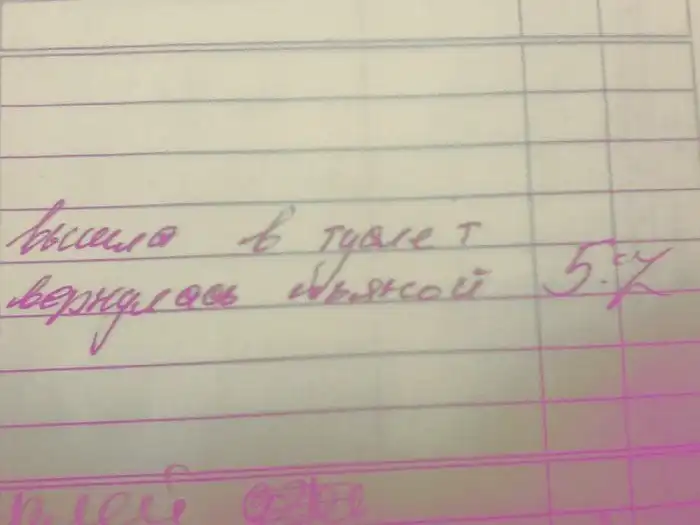 вышла в туалет
вернулась пьяной 5:Z
клей